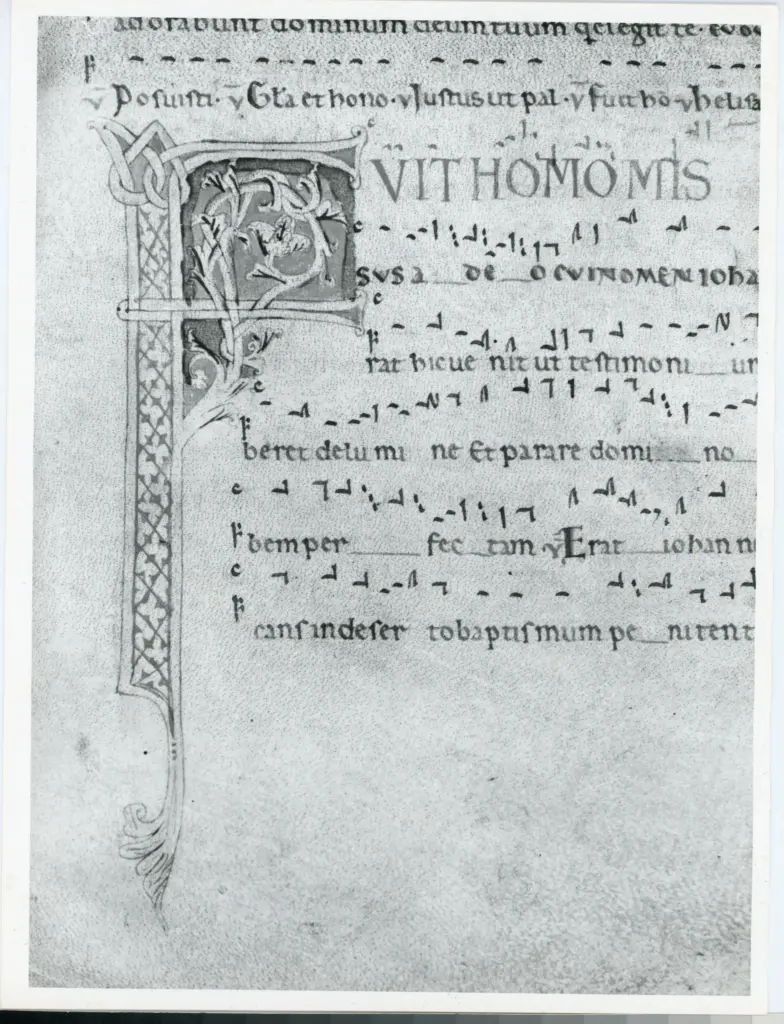 adorabunt dominum deum tuum q̄ elegit te. euou
v̄ Posuisti. v̄ Gl̄a et hono. v̄ Iustus ut pal. v̄ fuit ho v̄ helisa
FVIT HOMO MIS
SVS A DEO CVI NOMEN IOHA
rat hic ue nit ut testimoni um
beret de lu mi ne Et parare domi no
bem per fec tam. v̄ Erat iohann
cans in deser to baptismum pe nitent